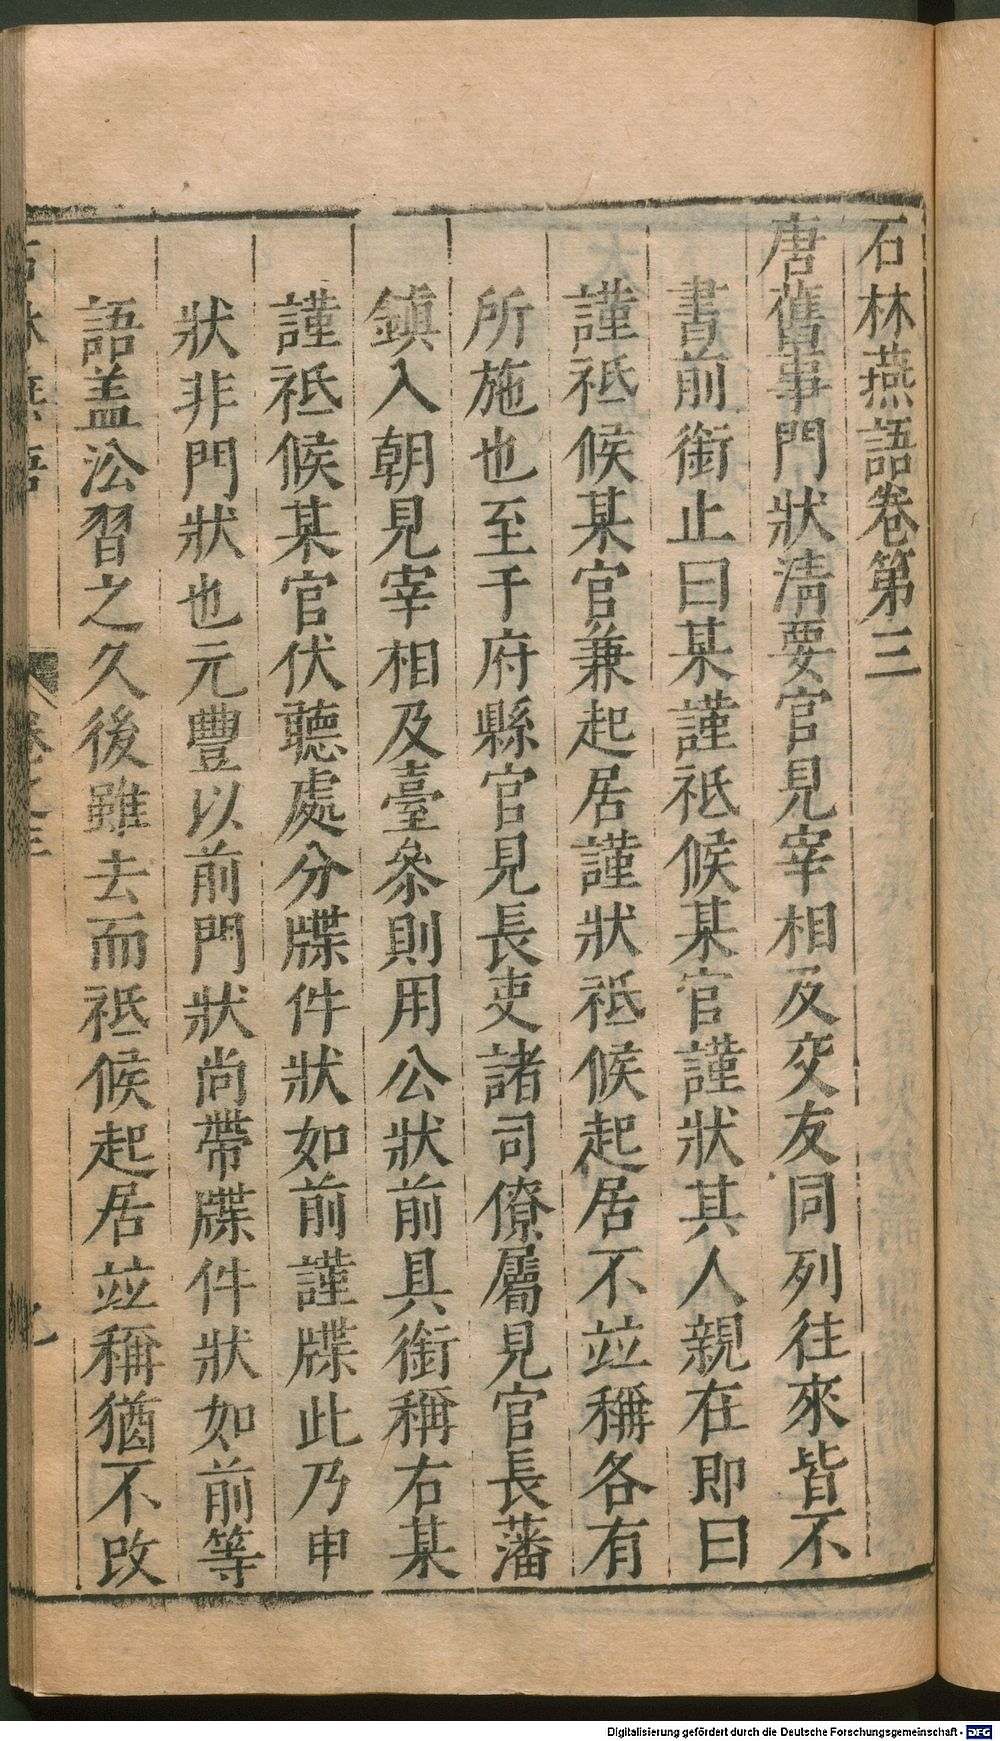 石林燕語卷第三
唐舊事門狀淸要官見宰相及交友同列往來皆不
書前銜止曰某謹祗候某官謹狀其人親在即曰
謹祗候某官兼起居謹狀祗候起居不並稱各有
所施也至于府縣官見長吏諸司僚屬見官長藩
鎮入朝見宰相及臺叅則用公狀前具銜稱右某
謹祗候某官伏聽處分牒件狀如前謹牒此乃申
狀非門狀也元豐以前門狀尚帶牒件狀如前等
語盖㳂習之久後雖去而祗候起居並稱猶不改
石林燕語
卷之三
Digitalisierung gefördert durch die Deutsche Forschungsgemeinschaft - DFG